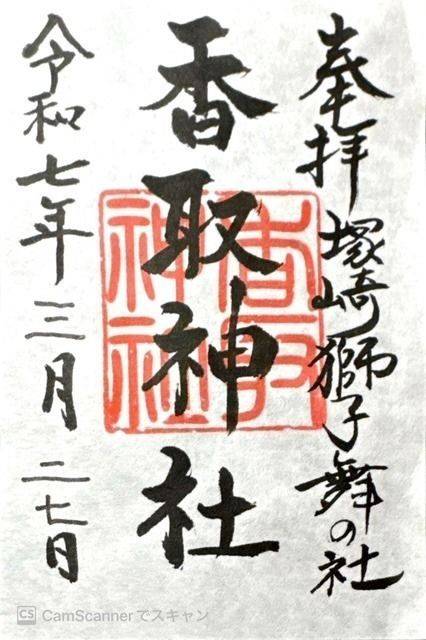 奉拝 塚崎獅子舞の社
香取神社
香取神社
令和七年三月二七日
CS CamScannerでスキャン